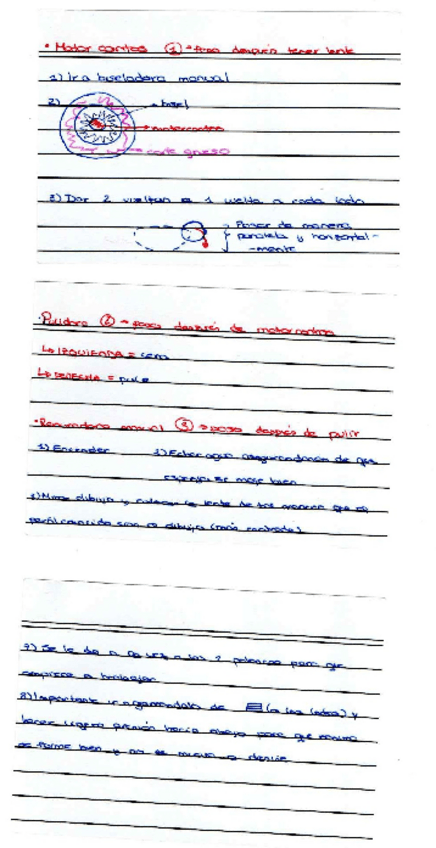 • Motor cantos ① → paso después tener lente
1) Ir a biseladora manual
2)
→ bisel
→ motor cantos
→ corte grueso
3) Dar 2 vueltas o 1 vuelta a cada lado
→ Poner de manera
paralela y horizontal-
-mente
· Pulidora ② → paso después de motor cantos
↳ IZQUIERDA = cera
↳ DERECHA = pule
• Ranuradora manual ③ → paso después de pulir
1) Encender
2) Echar agua asegurándonos de que
esponja se moje bien
3) Mirar dibujo y colocar la lente de tal manera que el
perfil coincida con el dibujo
7) Se le da a la vez a las 2 palancas para que
empiece a trabajar
8) Importante ir agarrándola de (a los lados) y
hacer ligera presión hacia abajo para que ranura
se forme bien y no se mueva o deslice